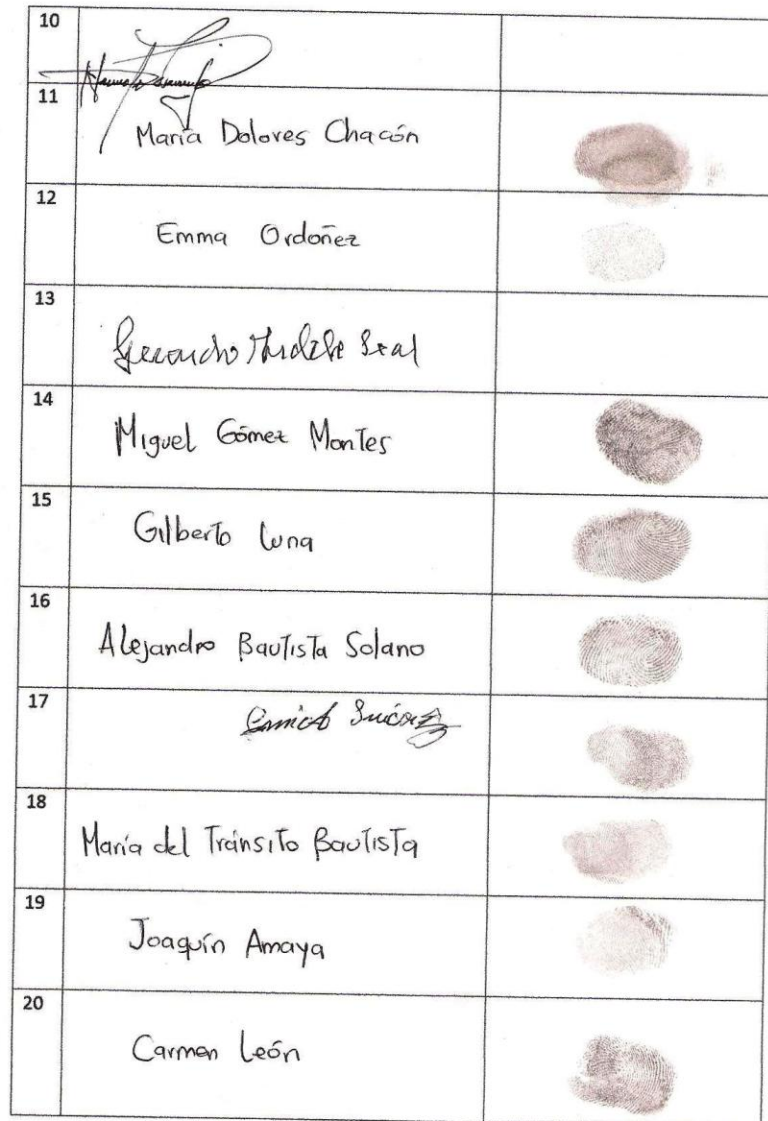 10
11
María Dolores Chacón
12
Emma Ordoñez
13
14
Miguel Gómez Montes
15
Gilberto Luna
16
Alejandro Bautista Solano
17
18
María del Tránsito Bautista
19
Joaquín Amaya
20
Carmen León